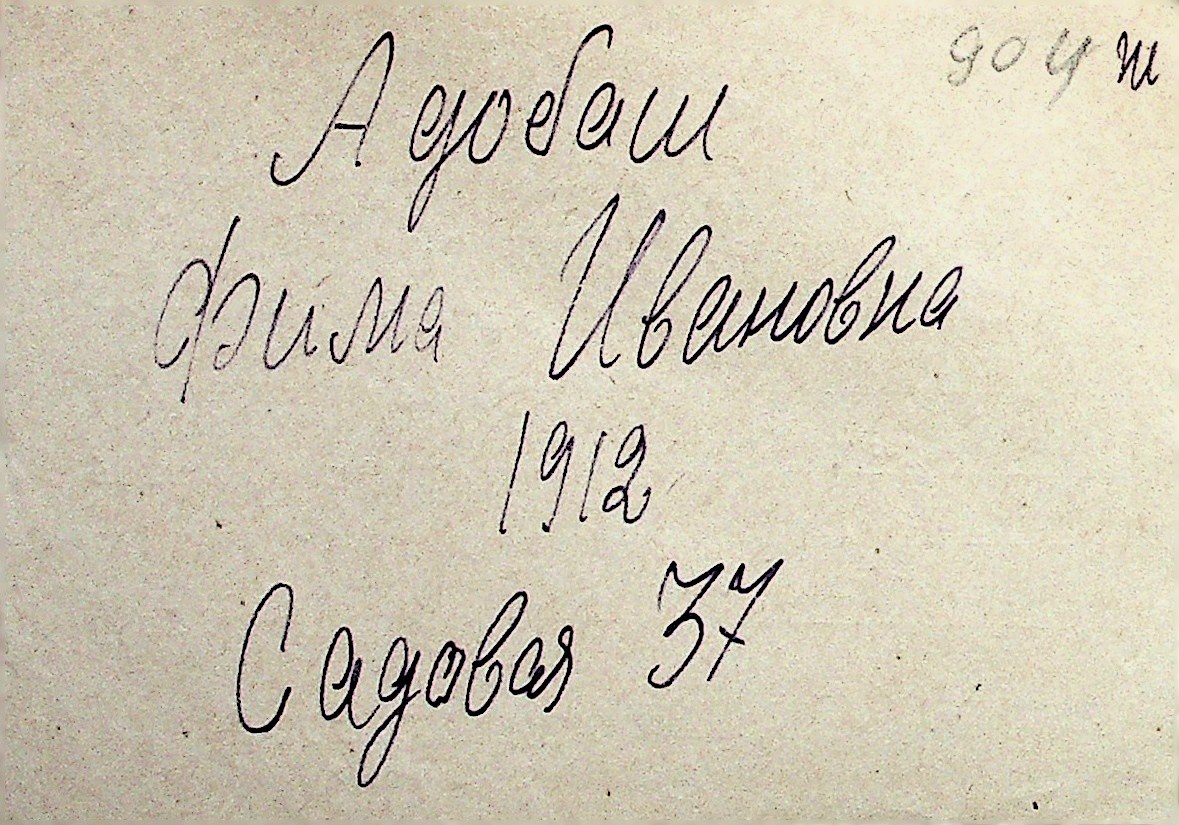 Адобаш
Фима Ивановна
1912
Садовая 37